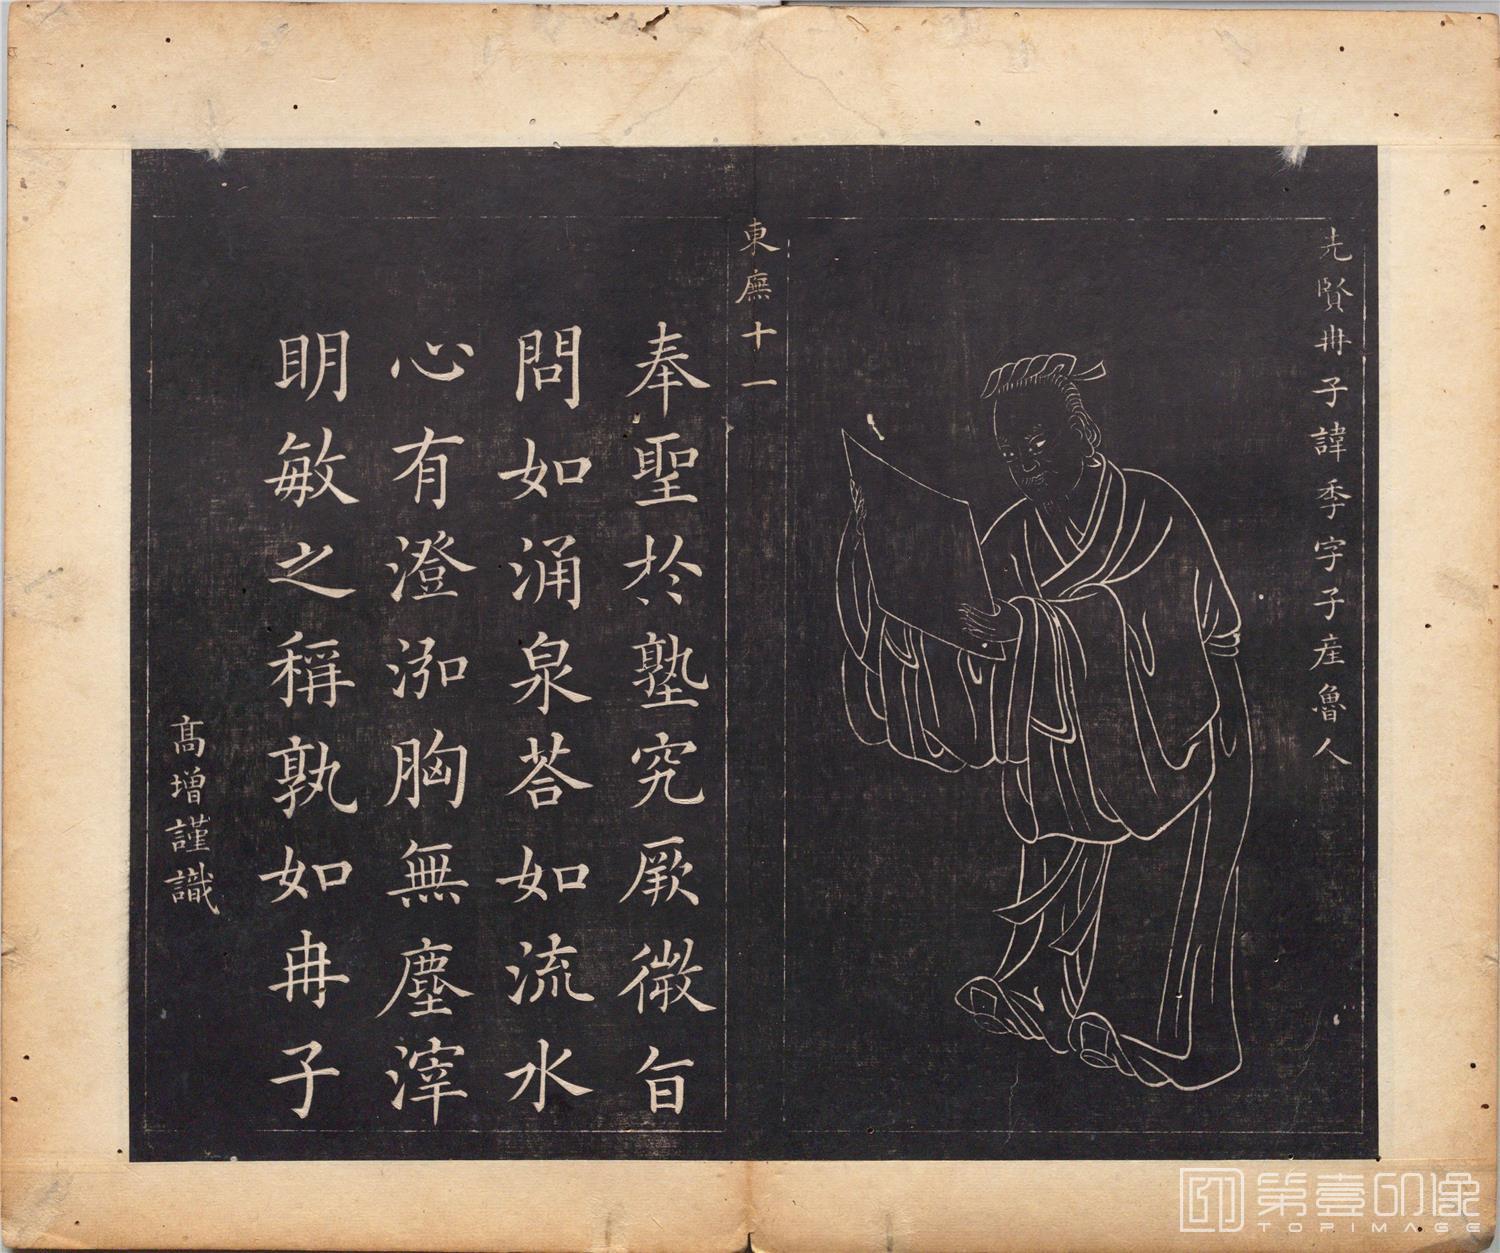 先賢冉子諱季字子産魯人
東廡十一
奉聖於塾究厥微旨
問如涌泉荅如流水
心有澄泓胸無塵滓
明敏之稱孰如冉子
高增謹識
第壹印像
TOPIMAGE